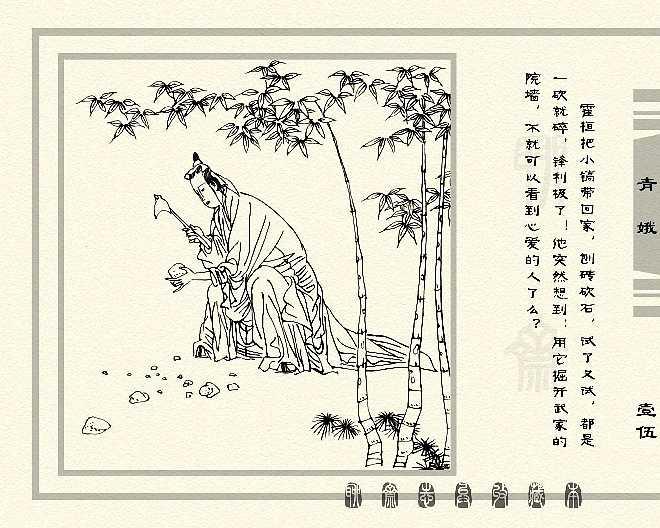 霍桓把小镐带回家，刨砖砍石，试了又试，都是
一砍就碎，锋利极了！他突然想到：用它掘开武家的
院墙，不就可以看到心爱的人了么？
青娥
壹伍
聊斋志异收藏本